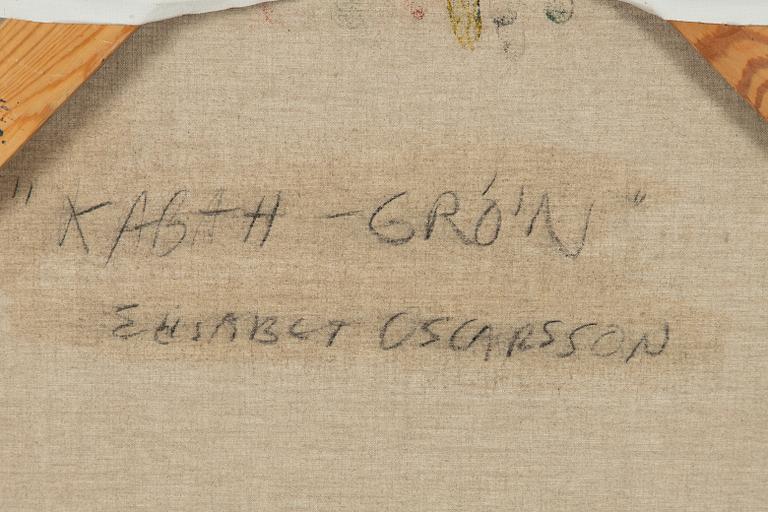 "KABAH -GRÖN"
ELISABET OSCARSSON